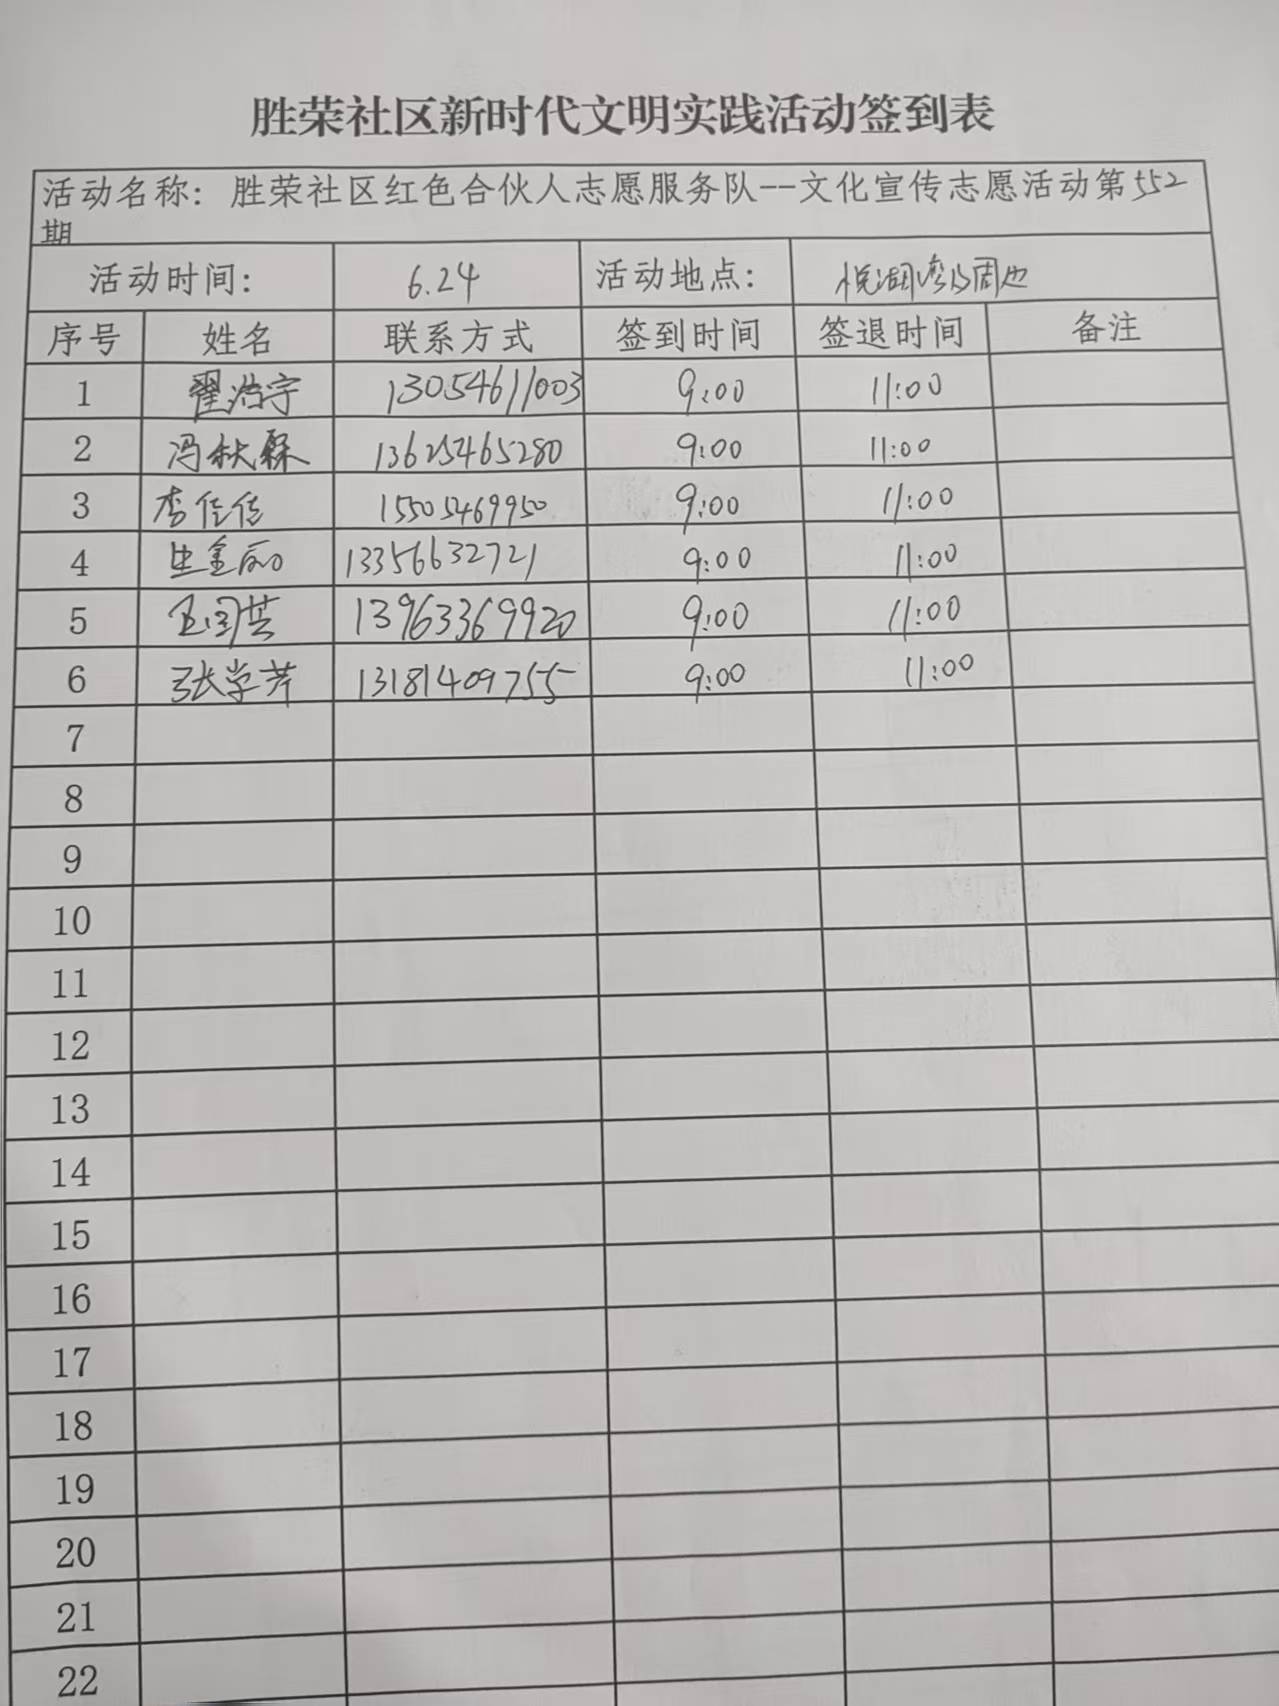 胜荣社区新时代文明实践活动签到表
活动名称：胜荣社区红色合伙人志愿服务队--文化宣传志愿活动第552
期
活动时间： 6.24 活动地点： 悦湖湾及周边
序号 姓名 联系方式 签到时间 签退时间 备注
1 翟浩宇 13054611003 9:00 11:00
2 冯秋霖 13625465280 9:00 11:00
3 李佳佳 15505469950 9:00 11:00
4 生金丽 13356632721 9:00 11:00
5 王国芸 13963369920 9:00 11:00
6 张学芹 13181409755 9:00 11:00
7
8
9
10
11
12
13
14
15
16
17
18
19
20
21
22